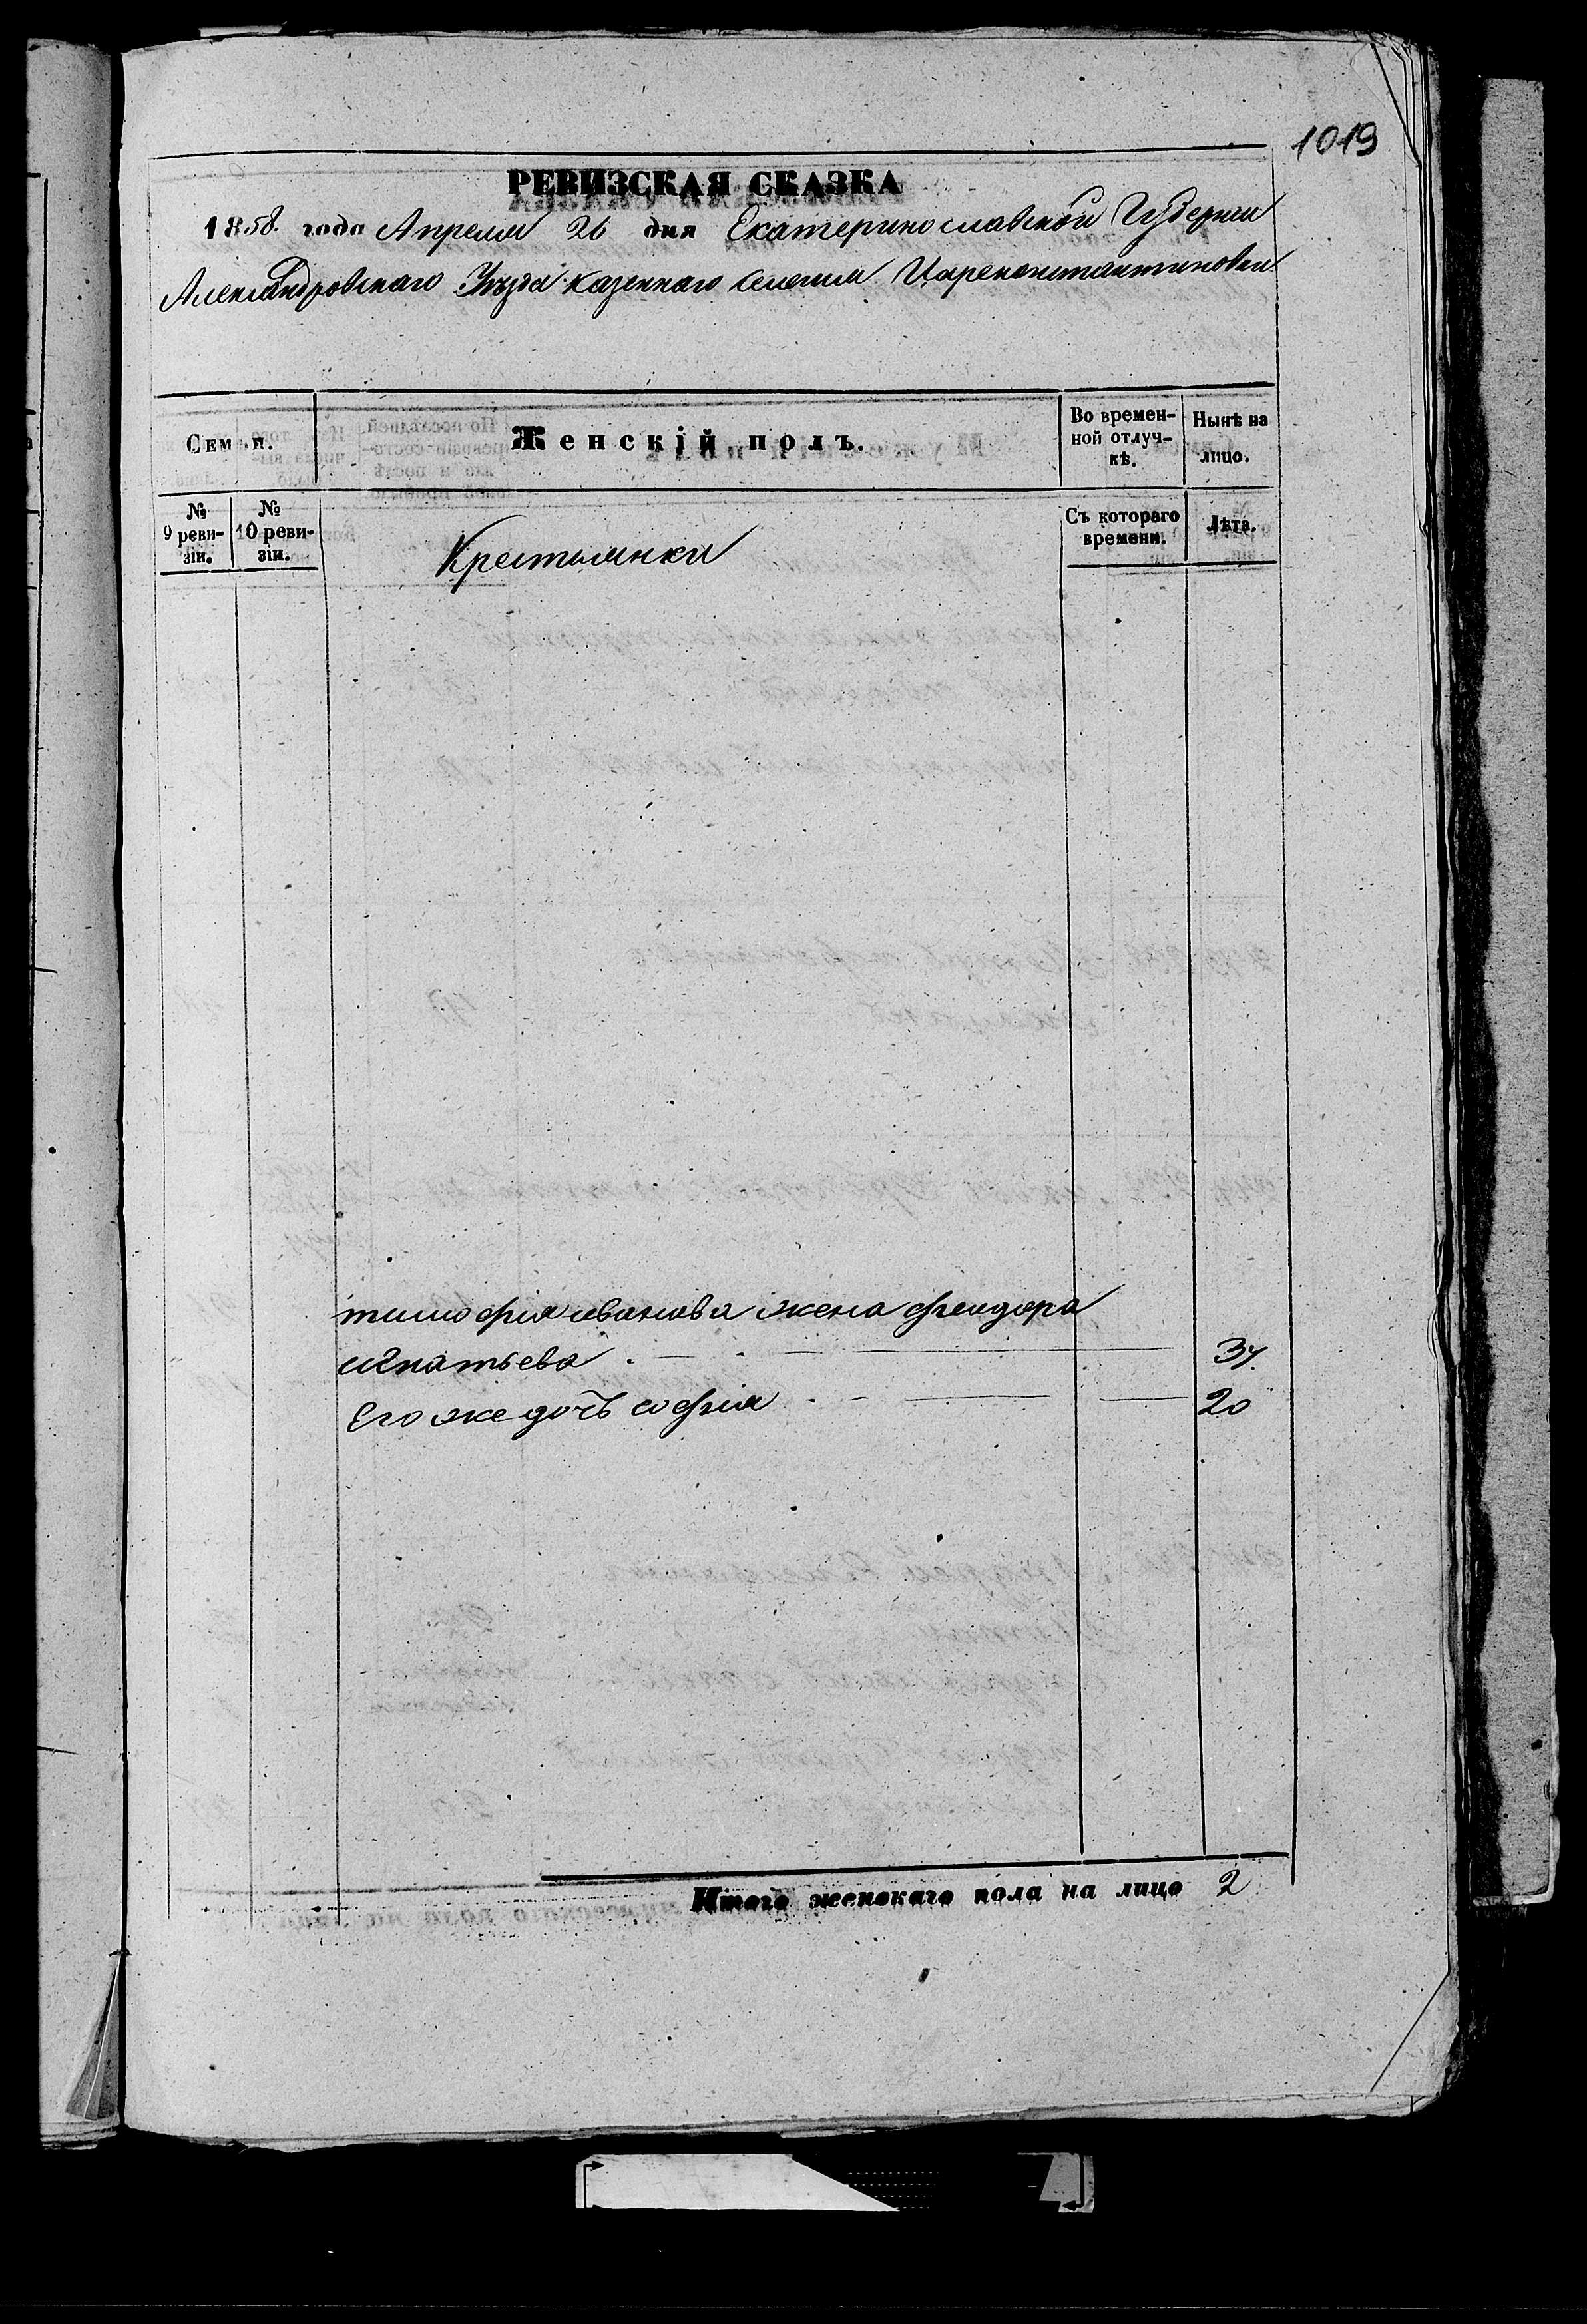 1019
РЕВИЗСКАЯ СКАЗКА
1858. года Апреля 26 дня Екатеринославской Губернии
Александровскаго Уезда казеннаго селения Цареконстантиновки
Семьи.
Женскій полъ.
Во времен-
ной отлуч-
кѣ.
Нынѣ на
лицо.
№
9 реви-
зіи.
№
10 реви-
зіи.
Крестьянки
Съ котораго
времени.
Лѣта.
тимофія иванова жена феодора
игнатьева 34.
Его же дочь софия 20
Итого женскаго пола на лицо 2